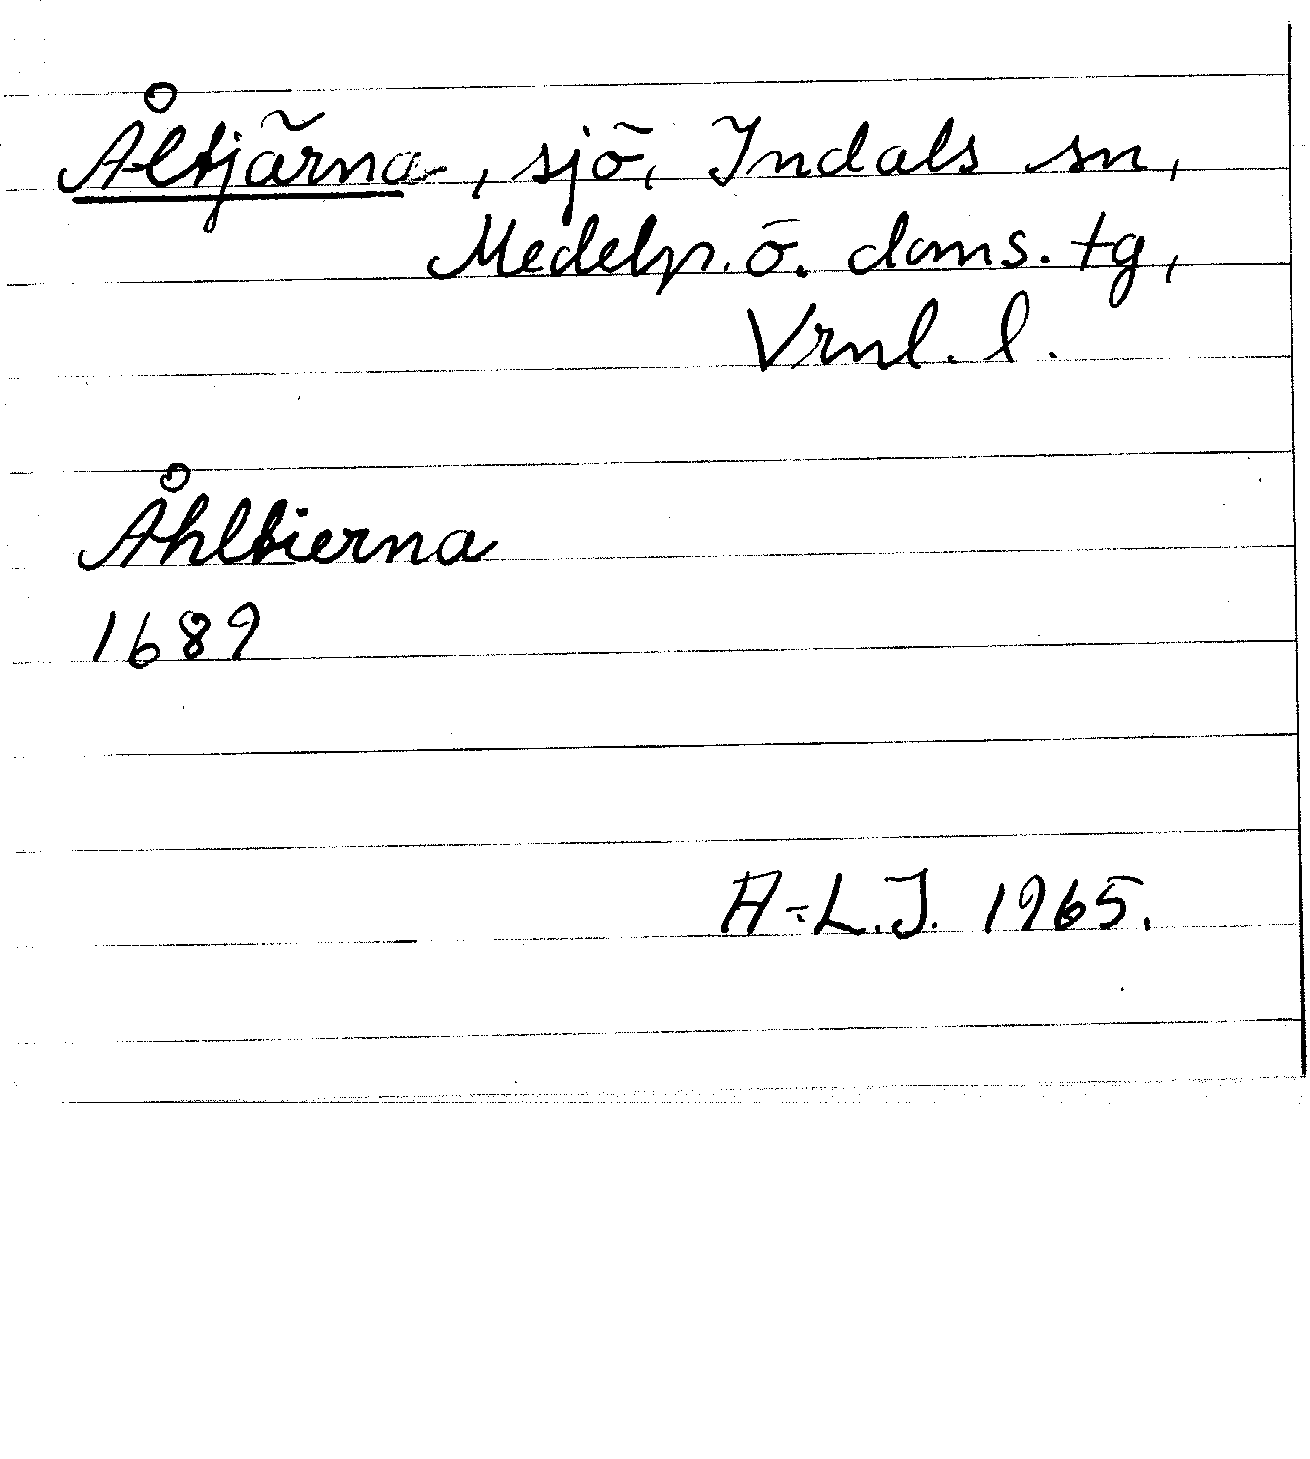 Åltjärna, sjö, Indals sn,
Medelp. ö. doms. tg,
Vrnl. l.
Åhltierna
1689
A-L.J. 1965.